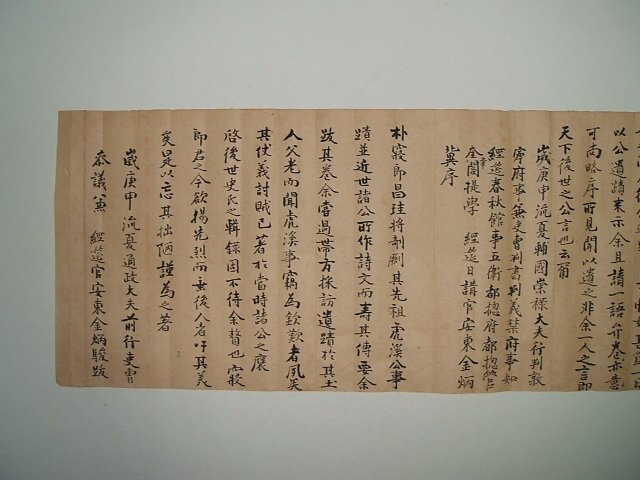 以公遺蹟來示余且請一語弁卷亦意
可尚略序所見聞以遺之非余一人之言即
天下後世之公言也云爾
歲庚申流夏輔國崇祿大夫行判敦
寧府事兼吏曹判書判義禁府事知
經筵春秋館事五衛都摠府都摠管
奎章閣提學 經筵日講官安東金炳
冀序
朴寢郎昌珪將剞劂其先祖虎溪公事
蹟並近世諸公所作詩文而壽其傳要余
跋其卷余嘗過帶方採訪遺蹟於其土
人父老而聞虎溪事竊為欽歎者夙矣
其仗義討賊已著於當時諸公之褒
啓後世史氏之輯錄固不待余贅也而寢
郎君之今欲揚先烈而垂後人者吁其美
矣是以忘其拙陋謹為之著
歲庚申流夏通政大夫前行吏曹
參議兼 經筵官安東金炳駿跋